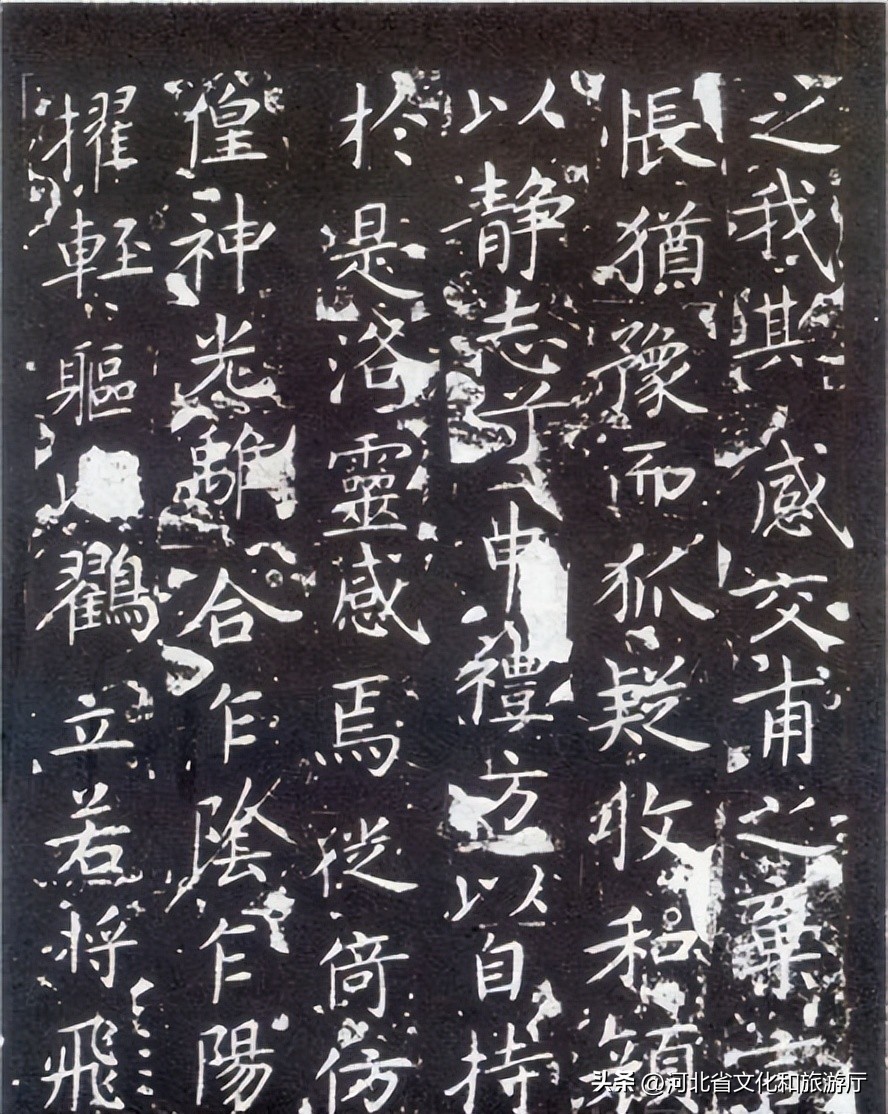 之我其感交甫之棄言
悵猶豫而狐疑收和顏
以静志兮申禮方以自持
於是洛靈感焉徙倚仿
偟神光離合乍陰乍陽
擢輕軀以鶴立若將飛
头条 @河北省文化和旅游厅